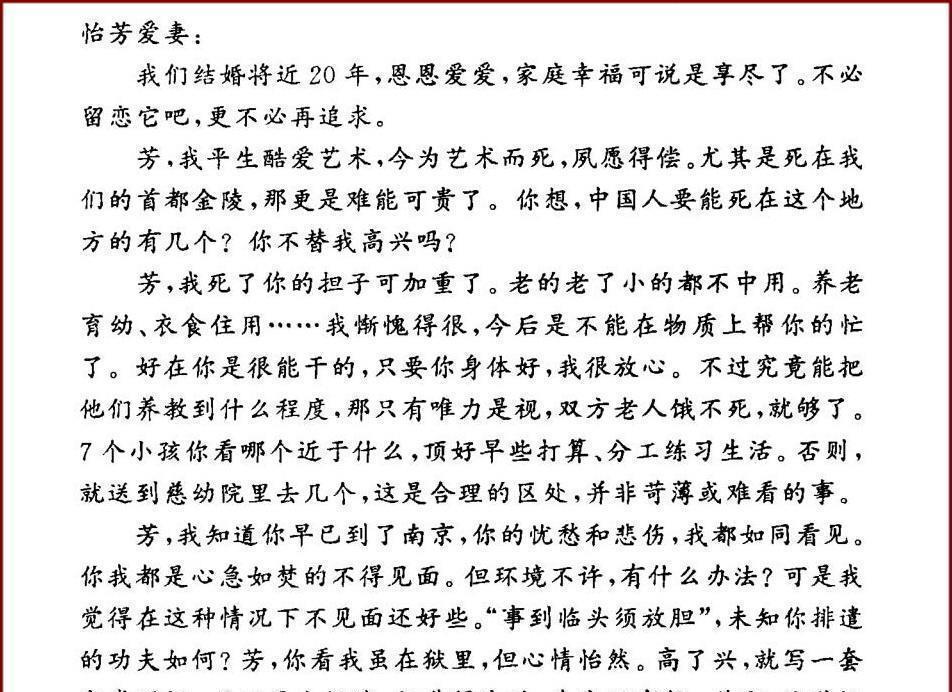 怡芳爱妻：
我们结婚将近20年，恩恩爱爱，家庭幸福可说是享尽了。不必
留恋它吧，更不必再追求。
芳，我平生酷爱艺术，今为艺术而死，夙愿得偿。尤其是死在我
们的首都金陵，那更是难能可贵了。你想，中国人要能死在这个地
方的有几个？你不替我高兴吗？
芳，我死了你的担子可加重了。老的老了小的都不中用。养老
育幼、衣食住用……我惭愧得很，今后是不能在物质上帮你的忙
了。好在你是很能干的，只要你身体好，我很放心。不过究竟能把
他们养教到什么程度，那只有唯力是视，双方老人饿不死，就够了。
7个小孩你看哪个近于什么，顶好早些打算、分工练习生活。否则，
就送到慈幼院里去几个，这是合理的区处，并非苛薄或难看的事。
芳，我知道你早已到了南京，你的忧愁和悲伤，我都如同看见。
你我都是心急如焚的不得见面。但环境不许，有什么办法？可是我
觉得在这种情况下不见面还好些。“事到临头须放胆”，未知你排遣
的功夫如何？芳，你看我虽在狱里，但心情怡然。高了兴，就写一套